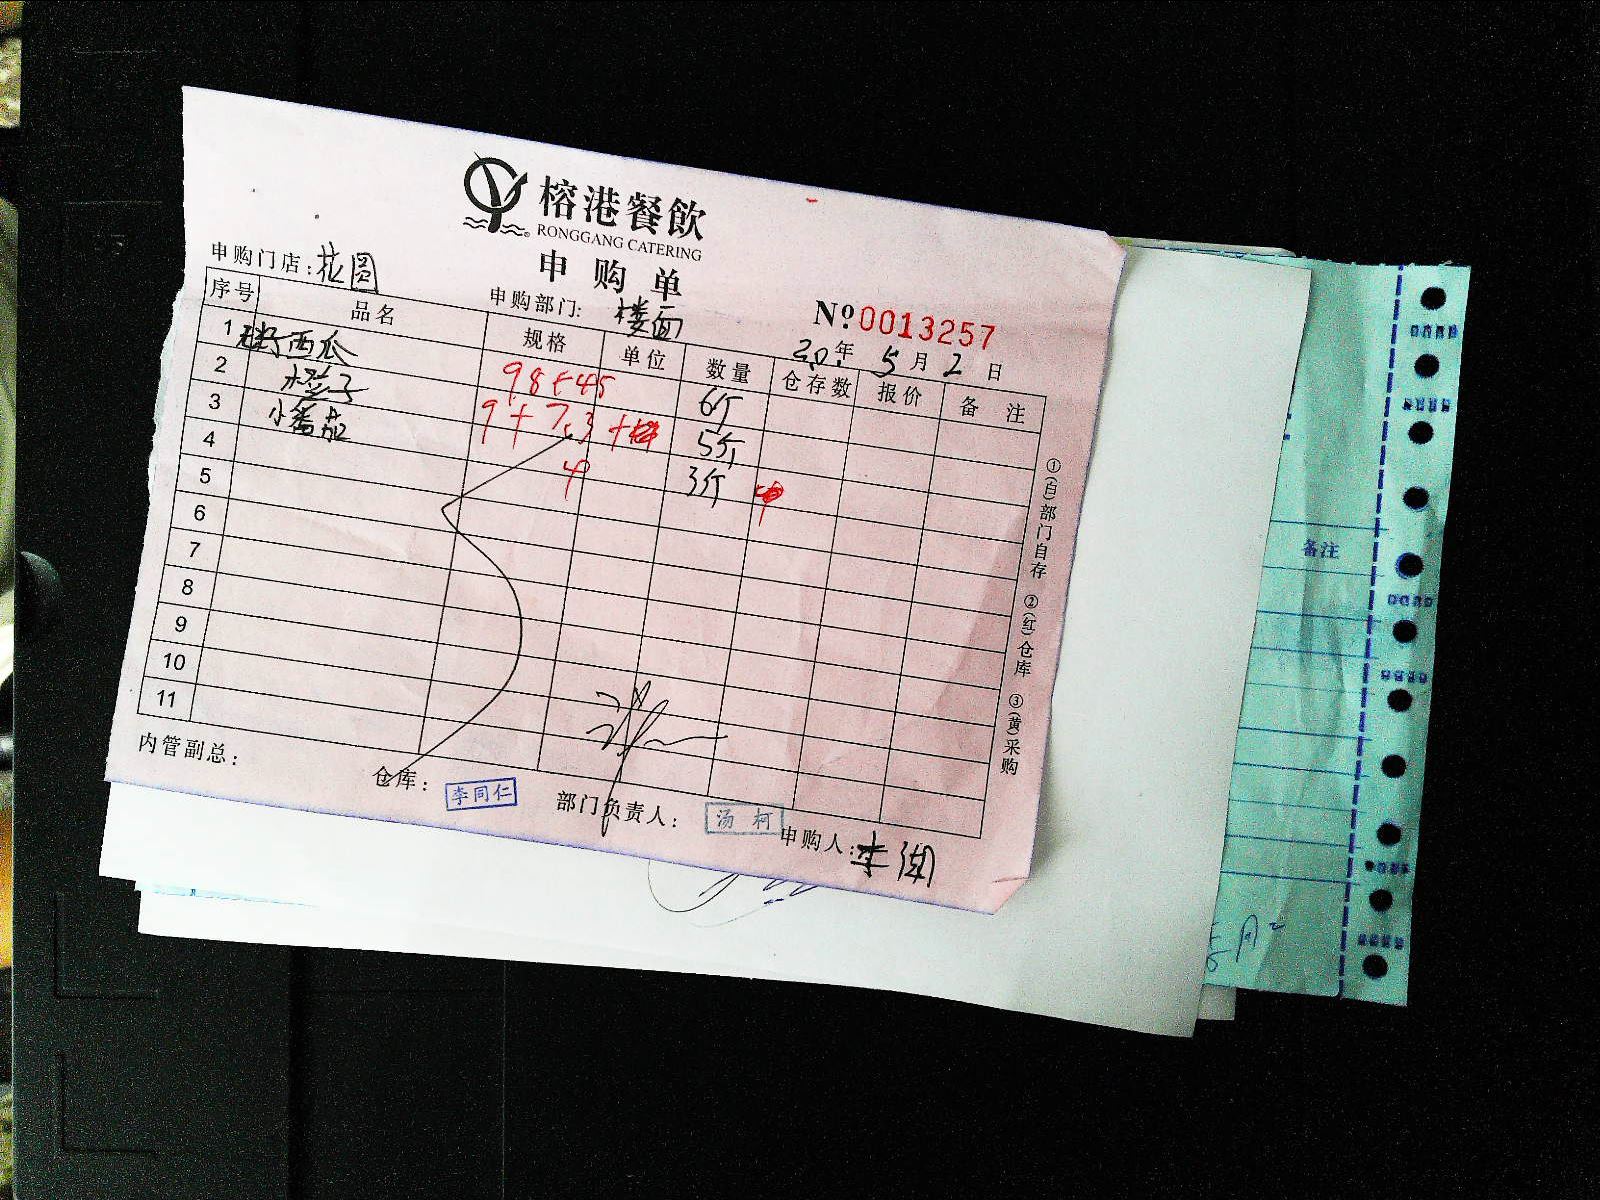 榕港餐飲
RONGGANG CATERING
申购单
申购门店: 花圆
申购部门: 楼面
№0013257
20年5月2日
序号 品名 规格 单位 数量 仓存数 报价 备注
1 西瓜 98+45 6斤
2 橙子 9+7.3+ 5斤
3 小番茄 4 3斤
4
5
6
7
8
9
10
11
①(白)部门自存 ②(红)仓库 ③(黄)采购
内管副总:
仓库: 李同仁
部门负责人: 汤柯
申购人:
备注